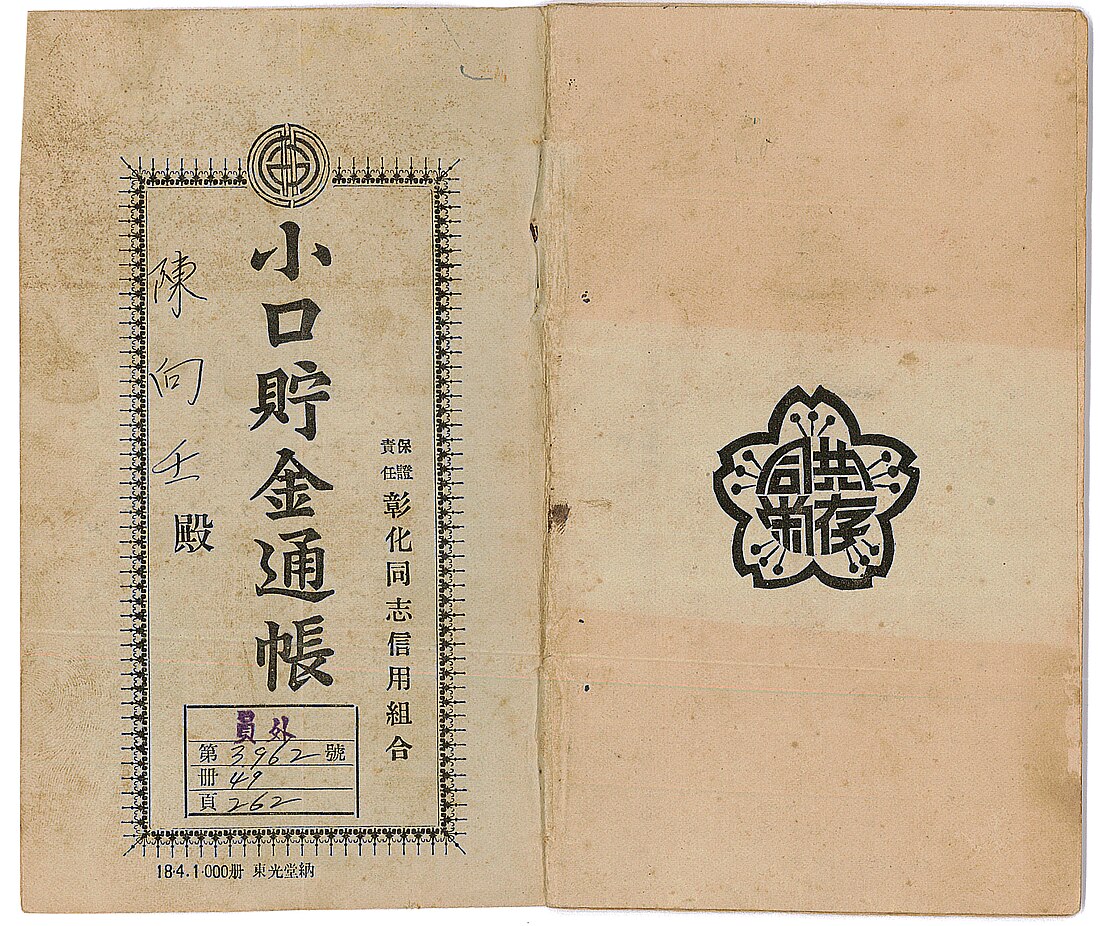 共存
同榮
保證
責任
彰化同志信用組合
小口貯金通帳
陳向壬殿
員外
第3962號
冊49
頁262
18.4.1.000册 東光堂納